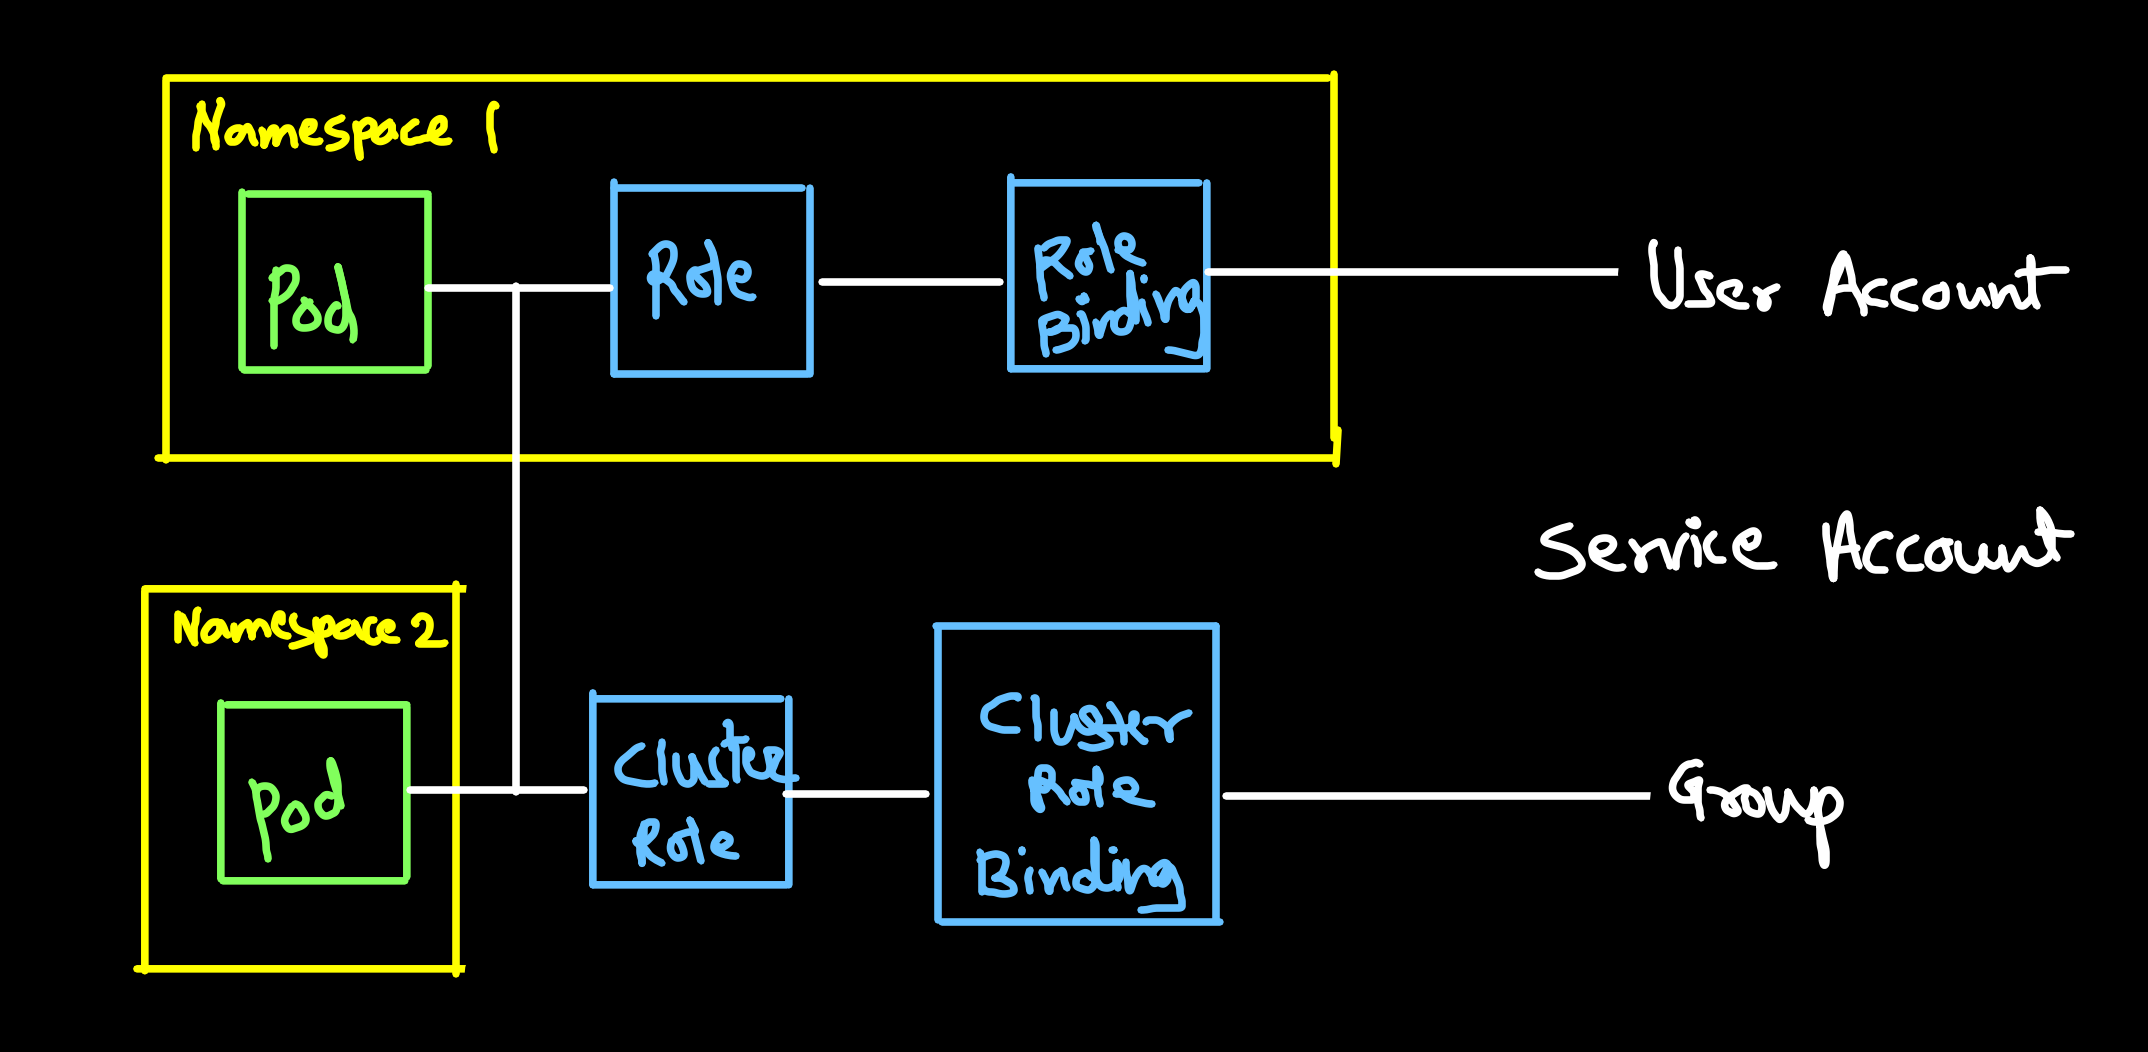 Namespace 1
Pod
Role
Role
Binding
User Account
Service Account
Namespace 2
Pod
Cluster
Role
Cluster
Role
Binding
Group